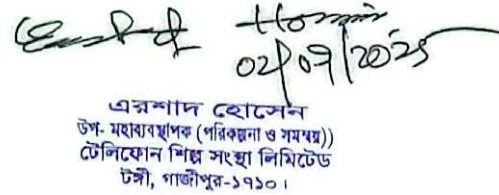 Ershad Hossain
02/09/2025
এরশাদ হোসেন
উপ- মহাব্যবস্থাপক (পরিকল্পনা ও সমন্বয়))
টেলিফোন শিল্প সংস্থা লিমিটেড
টঙ্গী, গাজীপুর-১৭১০।